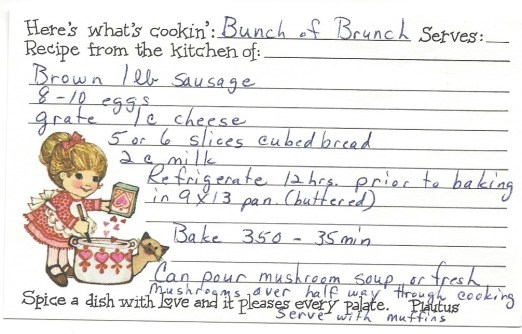 Here's what's cookin': Bunch of Brunch Serves:
Recipe from the kitchen of:
Brown 1 lb Sausage
8-10 eggs
grate 1 c cheese
5 or 6 slices cubed bread
2 c milk
Refrigerate 12 hrs. prior to baking
in 9x13 pan. (buttered)
Bake 350 - 35 min
Can pour mushroom soup or fresh
Mushrooms over half way through cooking
Spice a dish with love and it pleases every palate. Plautus
Serve with muffins